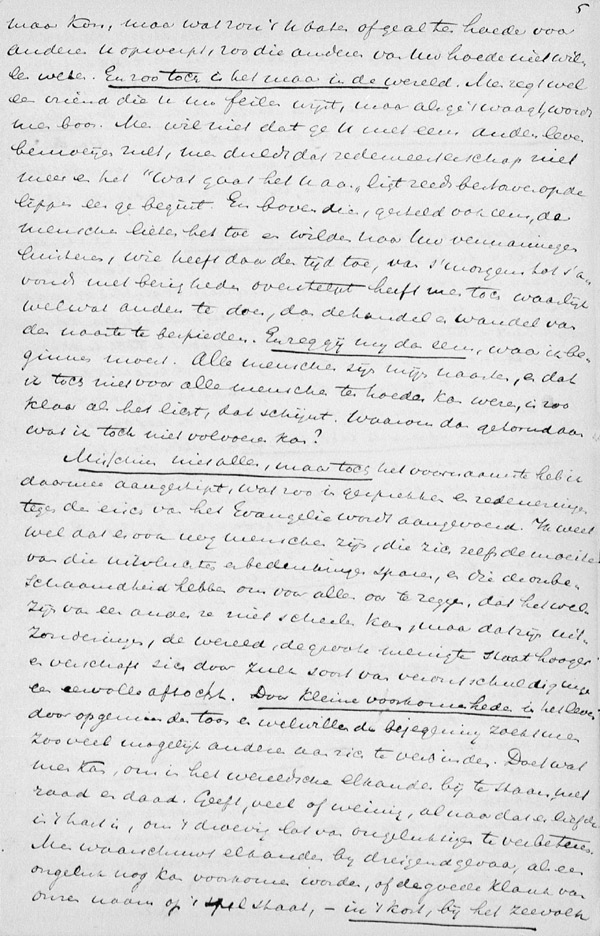 5
maar kon, maar wat zou 't U baten of ge al ten hoede voor
anderen U opwerpt, zoo die anderen van Uw hoede niet wil-
len weten. En zoo toch is het maar in de wereld. Men zegt wel
een vriend die U uw feilen wijst, maar als ge 't waagt, wordt
men boos. Men wil niet dat ge U met eens anders leven
bemoeijen zult, men duldt dat zedemeesterschap niet
meer en het "Wat gaat het U aan" ligt reeds bestorven op de
lippen eer ge begint. En bovendien, gesteld ook eens, de
menschen lieten het toe en wilden naar Uw vermaningen
luisteren, wie heeft daar den tijd toe, van s'morgens tot s'a-
vonds met bezigheden overstelpt heeft men toch waarlijk
wel wat anders te doen, dan de handel en wandel van
den naaste te bespieden. En zeg gij mij dan eens, waar ik be-
ginnen moest. Alle menschen zijn mijn naasten, en dat
ik toch niet voor alle menschen ten hoeder kan wezen, is zoo
klaar als het licht, dat schijnt. Waarom dan getornd aan
wat ik toch niet volvoeren kan?
Misschien niet alles, maar toch het voornaamste heb ik
daarmee aangestipt, wat zoo in gesprekken en redeneeringen
tegen den eisch van het Evangelie wordt aangevoerd. Ik weet
wel dat er ook nog menschen zijn, die zich zelfs de moeite
van die uitvluchten en bedenkingen sparen, en die de onbe-
schaamdheid hebben om voor aller oor te zeggen, dat het wel-
zijn van een ander ze niet schelen kan, maar dat zijn uit-
zonderingen, de wereld, de groote menigte staat hooger
en verschaft zich door zulk soort van verontschuldigingen
een eervolle aftocht. Door kleine voorkomenheden in het leven
door opgeruimden toon en welwillende bejegening zoekt men
zooveel mogelijk anderen aan zich te verbinden. Doet wat
men kan, om in het wereldsche elkander bij te staan met
raad en daad. Geeft, veel of weinig, al naar dat er liefde
in 't hart is, om 't droevig lot van ongelukkigen te verbeteren.
Men waarschuwt elkander bij dreigend gevaar, als een
ongeluk nog kan voorkomen worden, of de goede klank van
onzen naam op 't spel staat, – in 't kort, bij het zeevolk